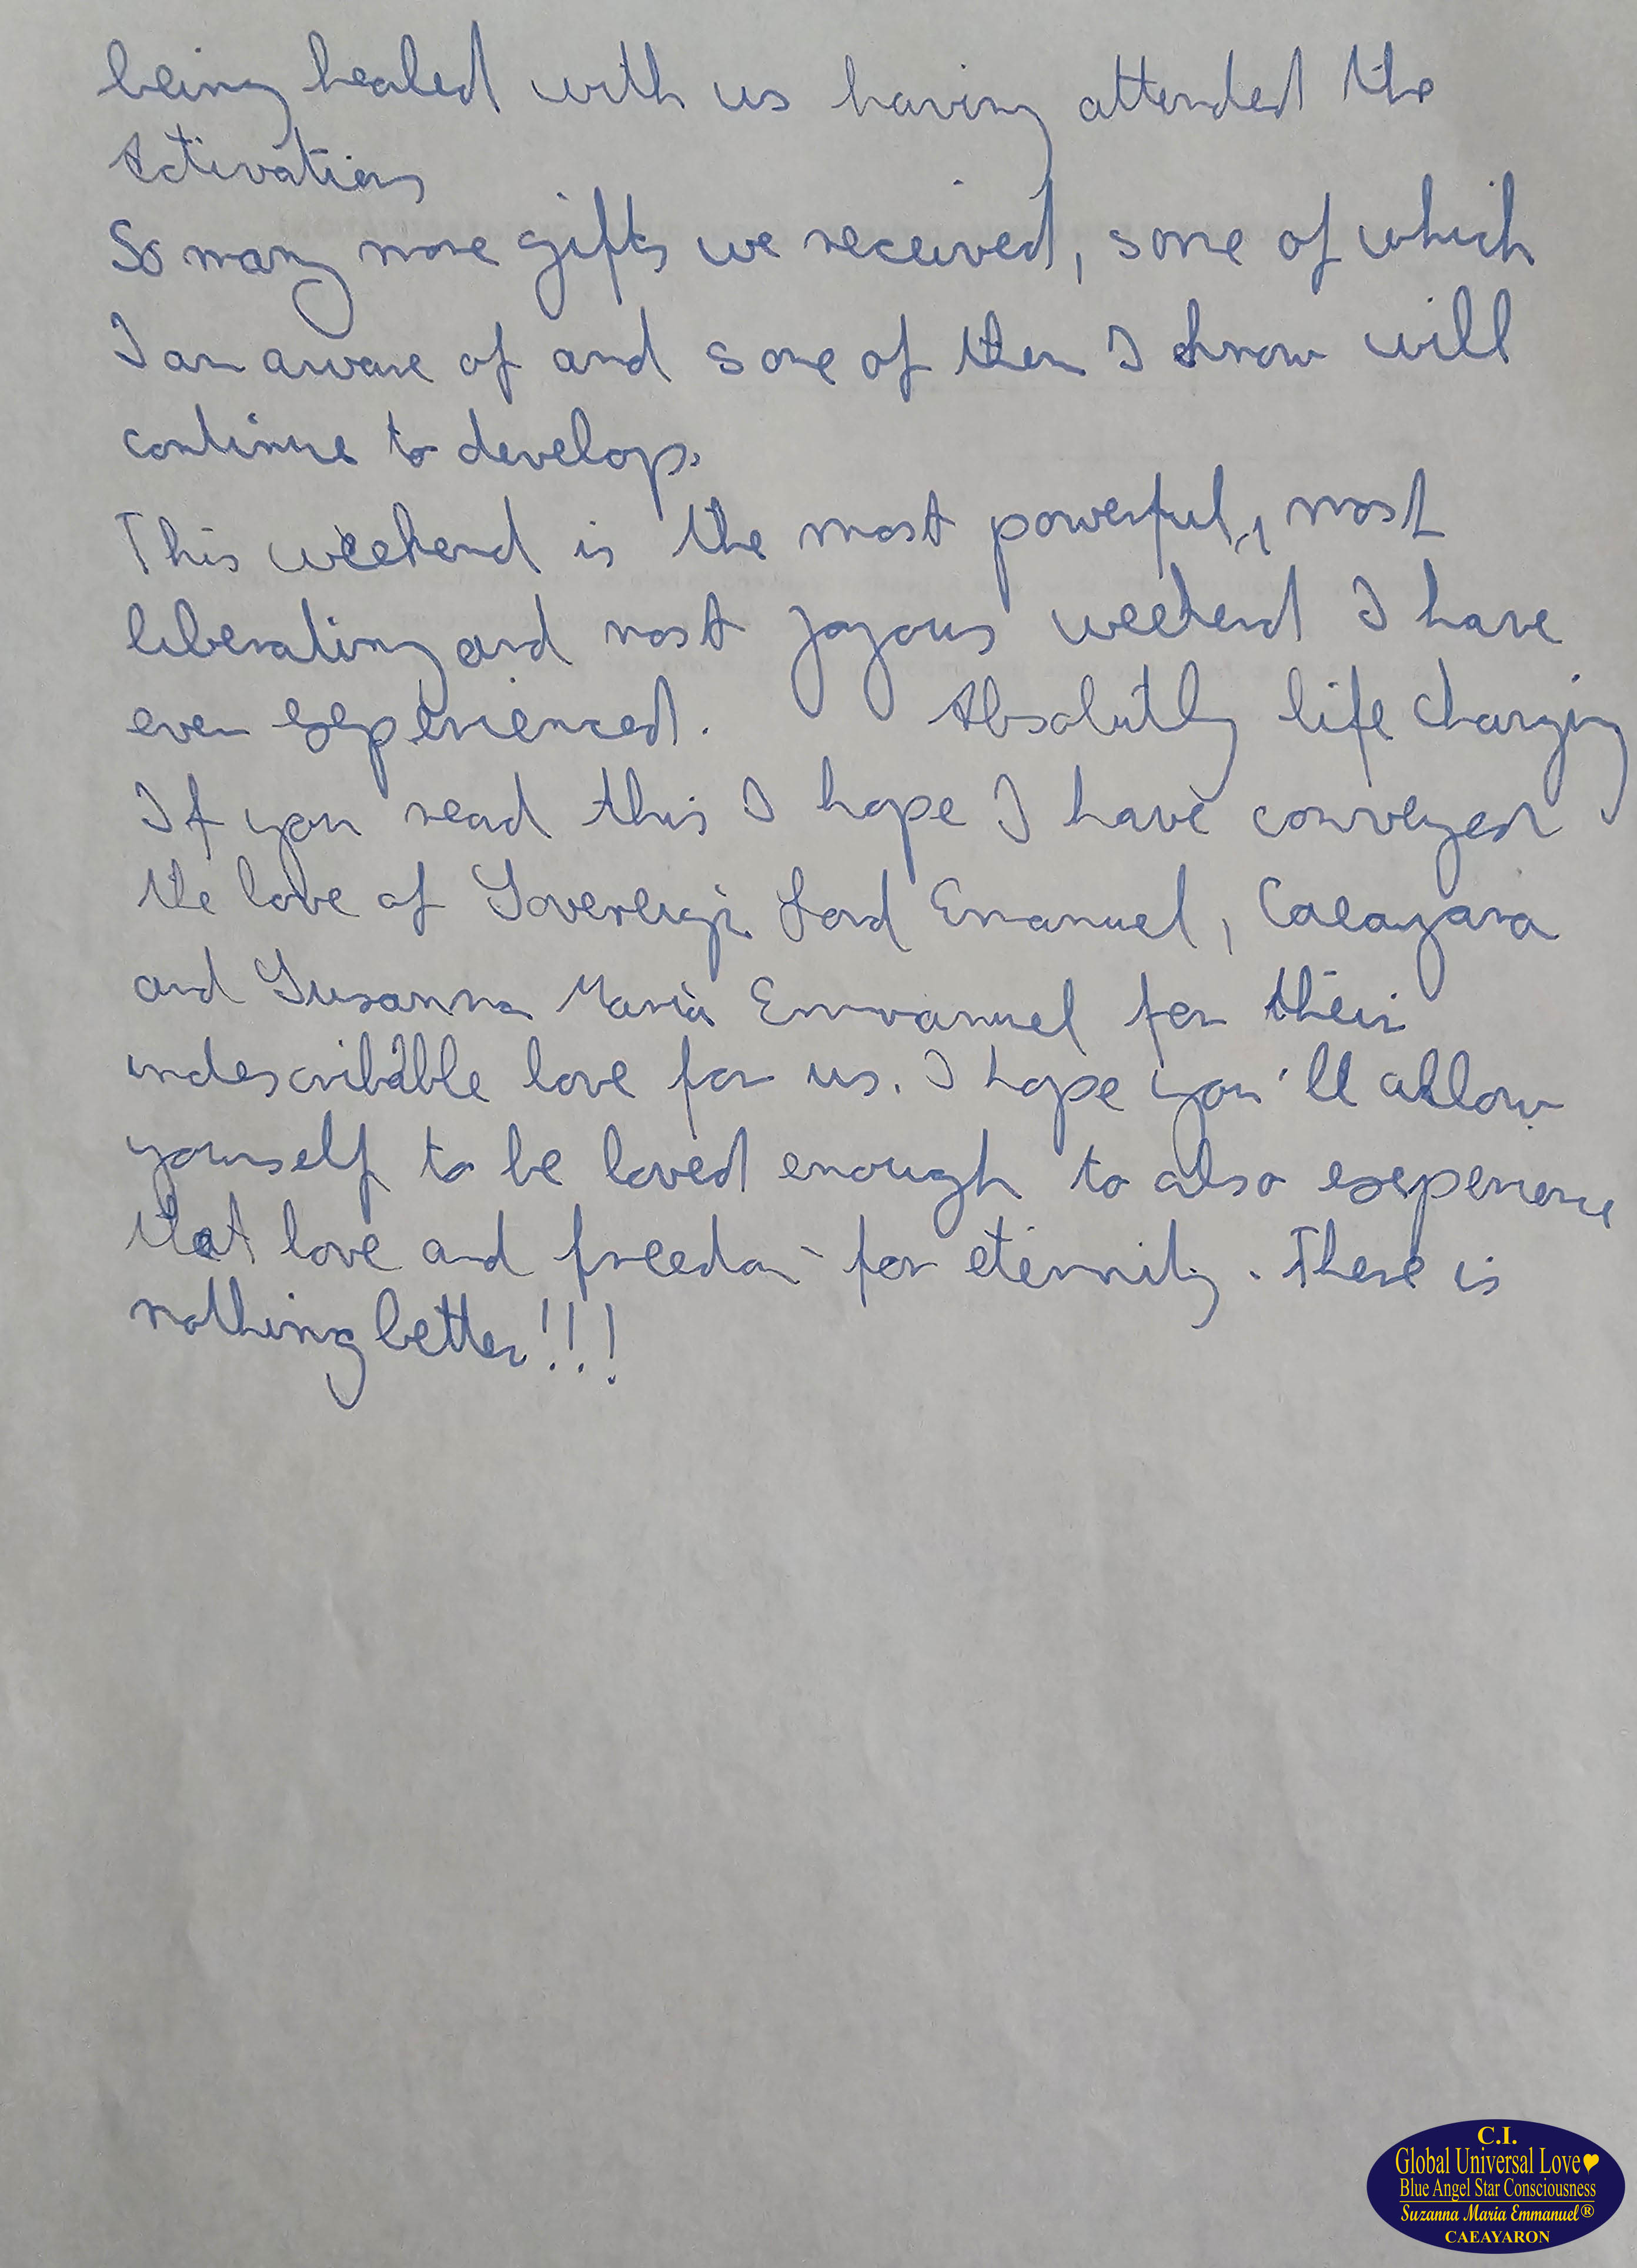 being healed with us having attended the
Activations
So many more gifts we received, some of which
I am aware of and some of them I know will
continue to develop.
This weekend is the most powerful, most
liberating and most joyous weekend I have
ever experienced. Absolutly life changing
If you read this I hope I have conveyed
the love of Sovereign Lord Emanuel, Caeayara
and Susanna Maria Emmanuel for their
indescribable love for us. I hope you'll allow
yourself to be loved enough to also experience
that love and freedom - for eternity. There is
nothing better!!!
C.I.
Global Universal Love
Blue Angel Star Consciousness
Suzanna Maria Emmanuel®
CAEAYARON